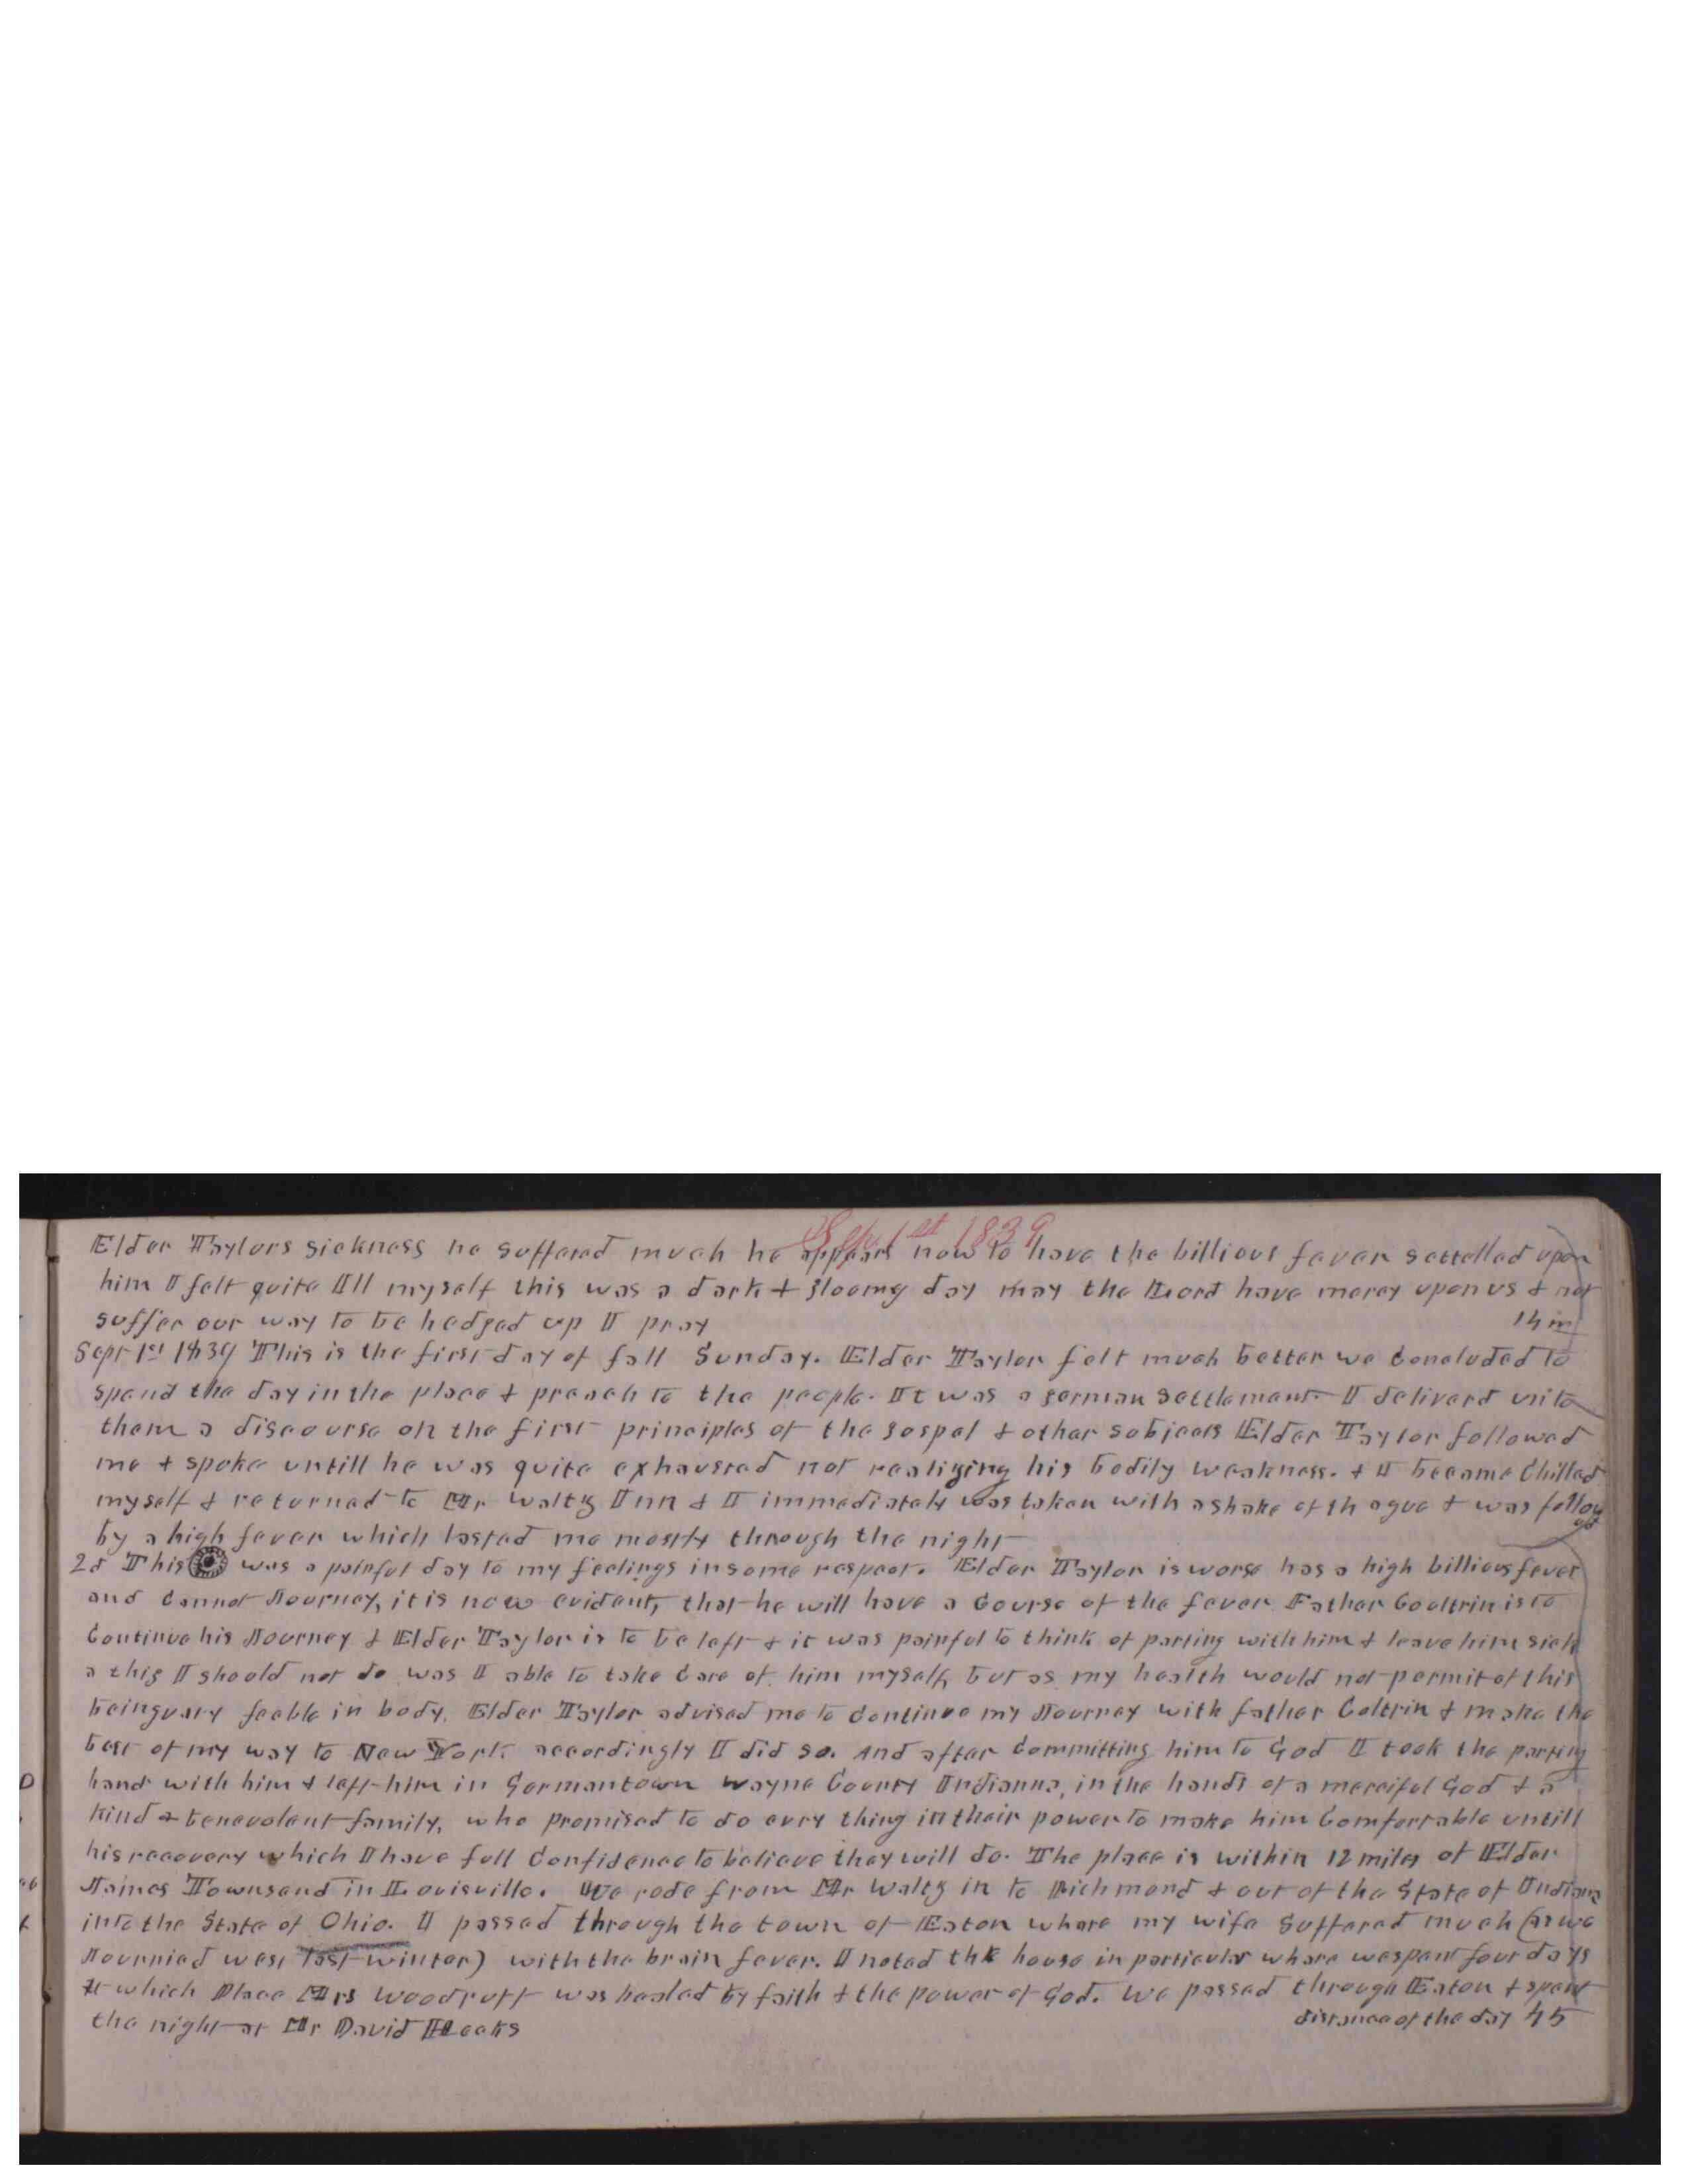 Sept 1st 1839
Elder Taylors sickness he suffered much he appears now to have the billious fever settelled upon
him I felt quite Ill myself this was a dark & gloomy day may the Lord have mercy upon us & not
suffer our way to be hedged up I pray 14 m
Sept 1st 1839 This is the first day of fall Sunday. Elder Taylor felt much better we Concluded to
spend the day in the place & preach to the people. It was a german settlement I deliverd unto
them a discourse on the first principles of the gospel & other subjects Elder Taylor followed
me & spoke untill he was quite exhausted not realizing his bodily weakness. & I became Chilled
myself & returned to Mr Waltz Inn & I immediately was taken with a shake of th ague & was follow
ed
by a high fever which lasted me mostly through the night
2d This was a painful day to my feelings in some respect. Elder Taylor is worse has a high billious fever
and Cannot Journey, it is now evident, that he will have a Course of the fever Father Cooltrin is to
Continue his Journey & Elder Taylor is to be left & it was painful to think of parting with him & leave him sick
a this I should not do was I able to take Care of him myself, but as my health would not permit of this
being very feeble in body. Elder Taylor advised me to Continue my Journey with father Coltrin & make the
best of my way to New York accordingly I did so. And after Committing him to God I took the parting
hand with him & left him in Germantown Wayne County Indianna, in the hands of a merciful God & a
kind & benevolent family, who promised to do evry thing in their power to make him Comfortable untill
his recovery which I have full Confidence to believe they will do. The place is within 12 miles of Elder
James Townsend in Louisville. We rode from Mr Waltz in to Richmond & out of the State of Indiana
into the State of Ohio. I passed through the town of Eaton whare my wife suffered much (as we
Journied west last winter) with the brain fever. I noted the house in particular whare we spent four days
At which Place Mrs Woodruff was healed by faith & the power of God. We passed through Eaton & spent
the night at Mr David Meeks distance of the day 45